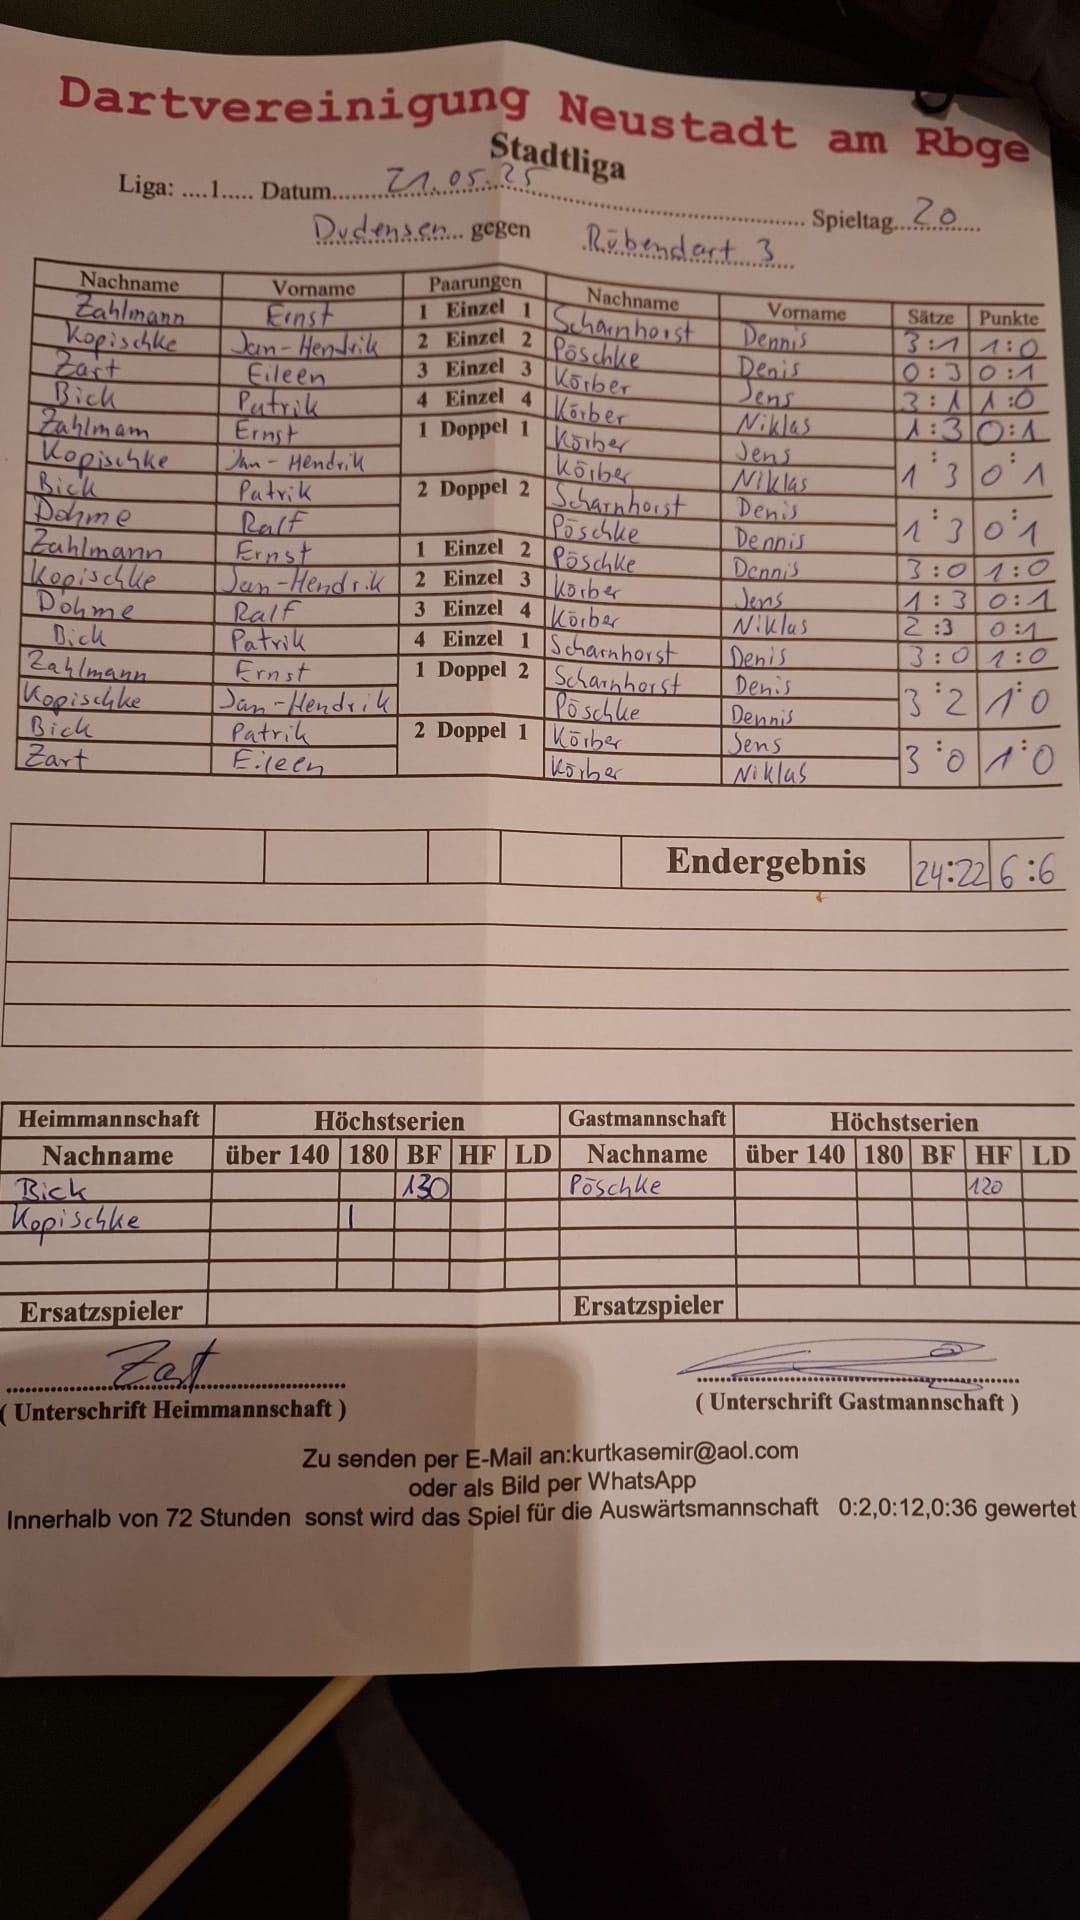 Dartvereinigung Neustadt am Rbge
Stadtliga
Liga: ....1..... Datum..... 21.05.25 ..... Spieltag.. 20 .....
Dudensen... gegen Rübendart 3
Nachname Vorname Paarungen Nachname Vorname Sätze Punkte
Zahlmann Ernst 1 Einzel 1 Scharnhorst Dennis 3:1 1:0
Kopischke Jan-Hendrik 2 Einzel 2 Pöschke Denis 0:3 0:1
Zart Eileen 3 Einzel 3 Körber Jens 3:1 1:0
Bick Patrik 4 Einzel 4 Körber Niklas 1:3 0:1
Zahlmam Ernst 1 Doppel 1 Körber Jens 1:3 0:1
Kopischke Jan-Hendrik Körber Niklas
Bick Patrik 2 Doppel 2 Scharnhorst Denis 1:3 0:1
Dohme Ralf Pöschke Dennis
Zahlmann Ernst 1 Einzel 2 Pöschke Dennis 3:0 1:0
Kopischke Jan-Hendrik 2 Einzel 3 Körber Jens 1:3 0:1
Dohme Ralf 3 Einzel 4 Körber Niklas 2:3 0:1
Bick Patrik 4 Einzel 1 Scharnhorst Denis 3:0 1:0
Zahlmann Ernst 1 Doppel 2 Scharnhorst Denis 3:2 1:0
Kopischke Jan-Hendrik Pöschke Dennis
Bick Patrik 2 Doppel 1 Körber Jens 3:0 1:0
Zart Eileen Körber Niklas
Endergebnis 24:22 6:6
Heimmannschaft Höchstserien Gastmannschaft Höchstserien
Nachname über 140 180 BF HF LD Nachname über 140 180 BF HF LD
Bick 130 Pöschke 120
Kopischke |
Ersatzspieler Ersatzspieler
Zart
( Unterschrift Heimmannschaft ) ( Unterschrift Gastmannschaft )
Zu senden per E-Mail an:kurtkasemir@aol.com
oder als Bild per WhatsApp
Innerhalb von 72 Stunden sonst wird das Spiel für die Auswärtsmannschaft 0:2,0:12,0:36 gewertet